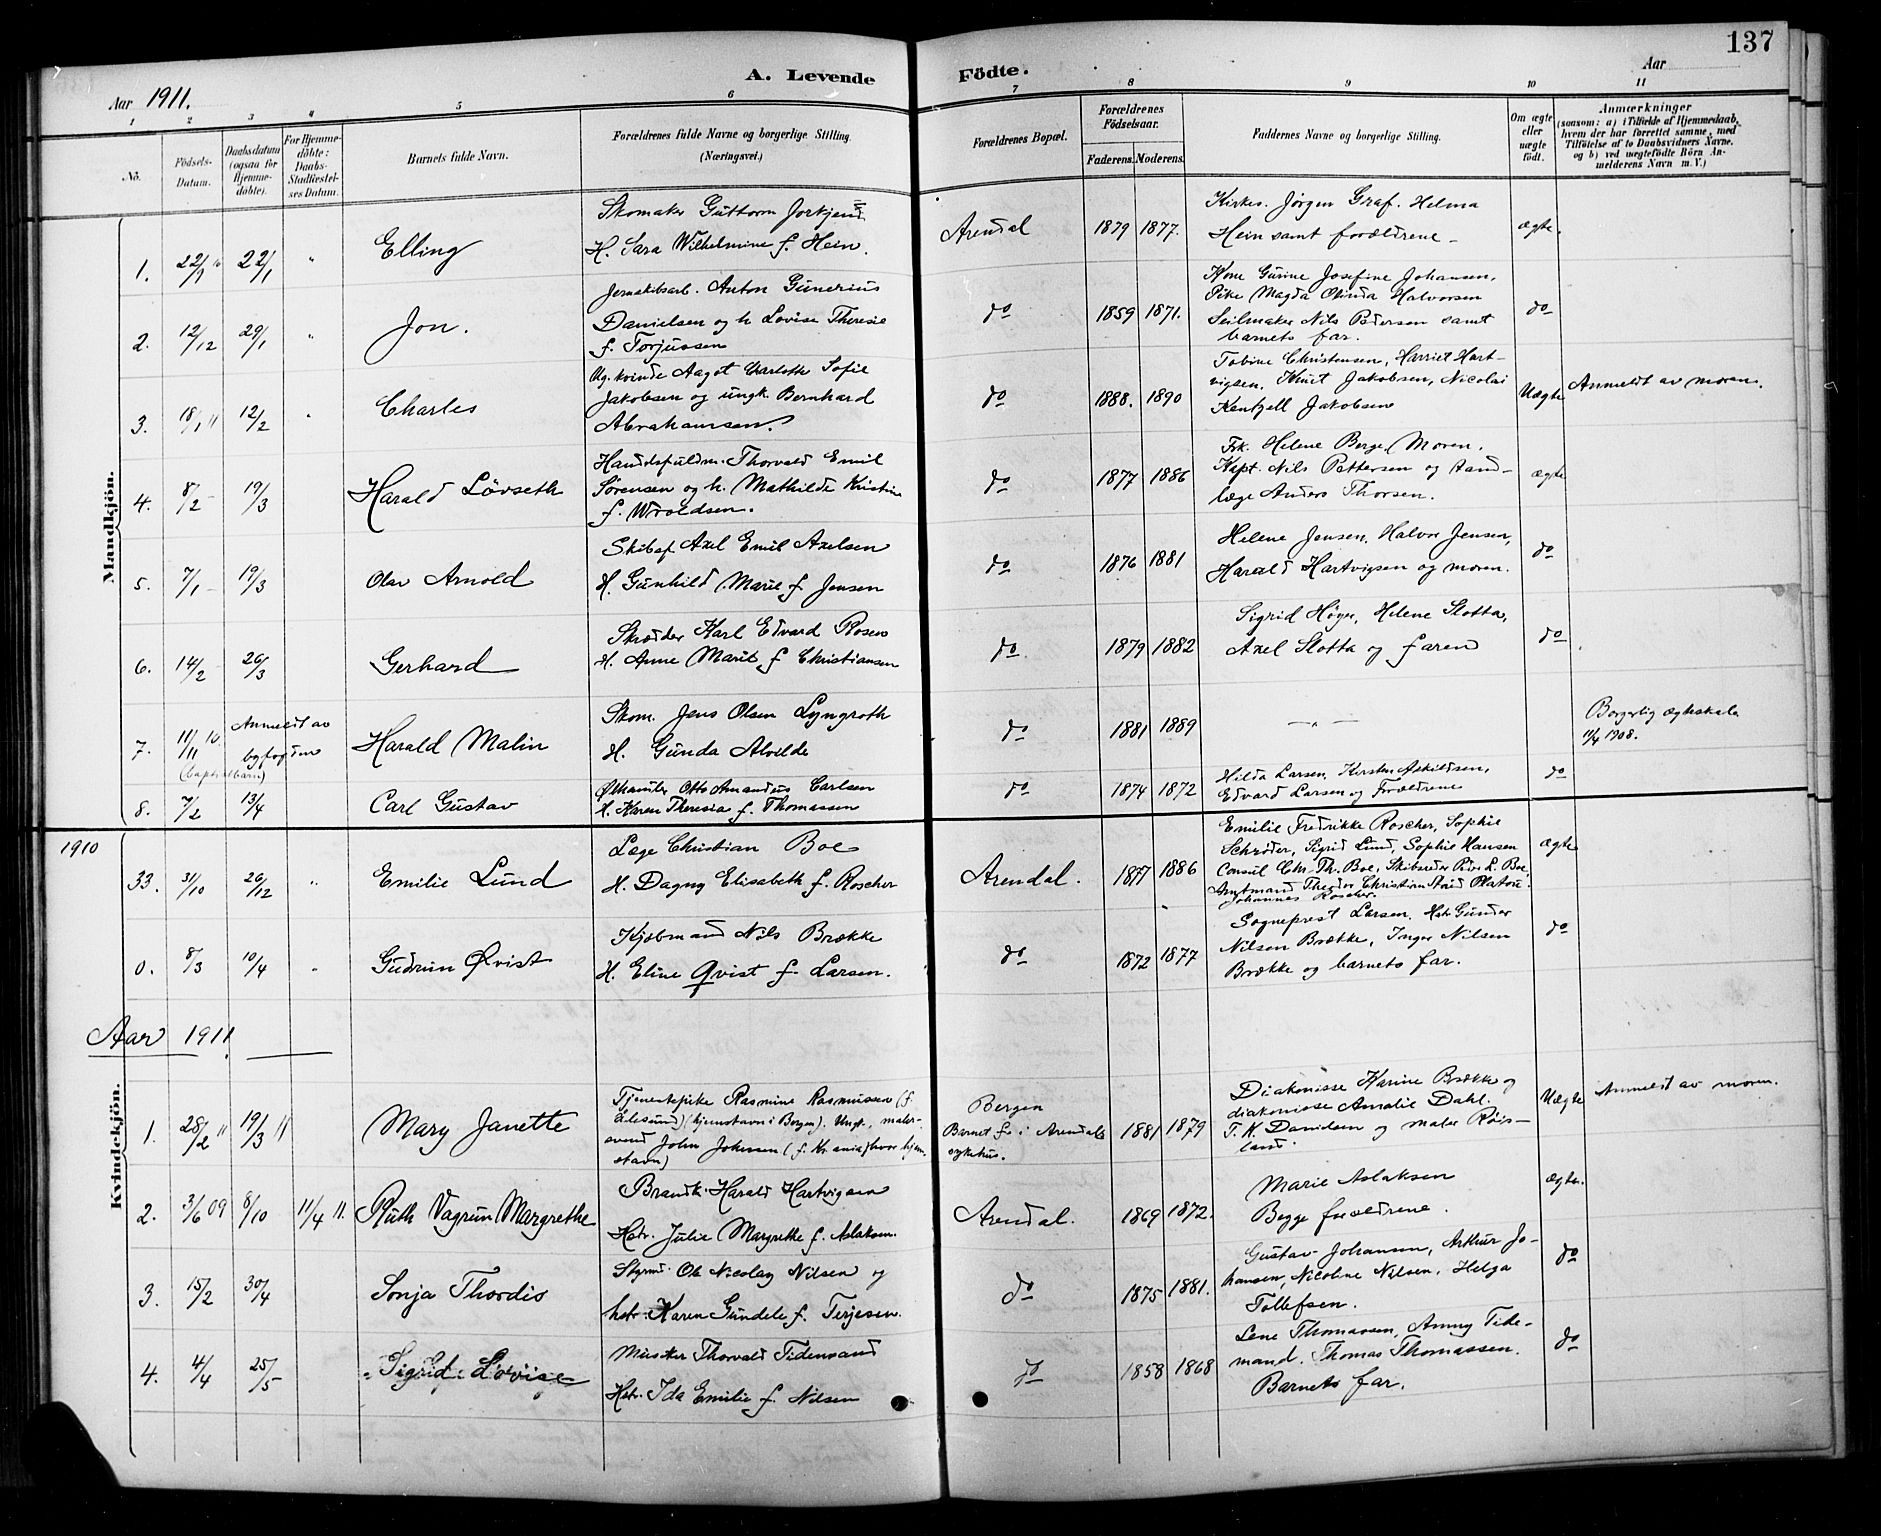 137
A. Levende Födte.
Aar 1911.
Aar
1 2 3 4 5 6 7 8 9 10 11
No.
Födsels-Datum.
Daabsdatum (ogsaa for Hjemmedöbte).
For Hjemmedöbte: Daabs-Stadfæstelses Datum.
Barnets fulde Navn.
Forældrenes fulde Navne og borgerlige Stilling. (Næringsvei.)
Forældrenes Bopæl.
Forældrenes Födselsaar.
Faderens. Moderens.
Faddernes Navne og borgerlige Stilling.
Om ægte eller uægte födt.
Anmærkninger
(saasom: a) i Tilfælde af Hjemmedaab, hvem der har forrettet samme, med Tilföielse af to Daabsvidners Navne. og b) ved uægtefödte Börn Anmelderens Navn m. V.)
Mandkjön.
1. 22/1 22/1 " Elling
Skomaker Guttorm
H. Sara Wilhelmine f. Hein.
Arendal 1879 1877.
Kirkes. Jörgen Graf. Helma
Hein samt forældrene
ægte.
2. 12/12 29/1 " Jon.
Jernskibsarb. Anton Gunerius
Danielsen og h. Lovise Theresie
f. Torjussen
do 1859 1871.
Kone Gurine Josefine Johansen,
Pike Magda Olinda Halvorsen
Seilmaker Nils Pedersen samt
barnets far.
do
3. 18/1 11 12/2 " Charles
Ug. kvinde Aagot Charlotte Sofie
Jakobsen og ungk. Bernhard
Abrahamsen.
do 1888. 1890
Tobine Christensen, Harriet Hart-
vigsen, Knut Jakobsen, Nicolai
Jakobsen
Uægte
Anmeldt av moren.
4. 8/2 19/3 Harald Lövseth
Thorvald Emil
Sörensen og h. Mathilde Kristine
f. Wroldsen.
do 1877 1886
Frk. Helene Berge, Moren,
Kapt. Nils Pettersen og tand-
læge Anders Thorsen.
ægte
5. 7/1 19/3 Olav Arnold
Skibsf Axel Emil Axelsen
H. Gunhild Marie f. Jensen
do 1876 1881
Helene Jensen, Halvor Jensen,
Harald Hartvigsen og moren.
do
6. 14/2 26/3 Gerhard
Skrædder Karl Edvard Rosen
H. Anne Marie f. Christiansen
do 1879 1882
Sigrid Höyer, Helene Slotta,
Axel Slotta og faren
do
7. 11/11 10 Anmeldt av
byfogden
(baptistbarn)
Harald Malin
Skom. Jens Olsen Lyngroth
H. Gunda Alvilde
do 1881 1889
— " —
Borgerlig ægteskab
11/4 1908.
8. 7/2 13/4 Carl Gustav
Ølhandler Otto Amandus Carlsen
H. Karen Theresia f. Thomassen
do 1874 1872
Hilda Larsen, Kirsten Askildsen,
Edvard Larsen og Forældrene
do
1910
33. 31/10 26/12 " Emilie Lund
Læge Christian Boe
H. Dagny Elisabeth f. Roscher
Arendal. 1877 1886
Emilie Fredrikke Roscher, Sophie
Schröder, Sigrid Lund, Sophie Hansen
Consul Chr. Th. Boe, Skibsreder L. Boe,
Amtmand Theodor Christian Platou
Johannes Roscher.
ægte
0. 8/3 10/4 " Gudrun Qvist
Kjöbmand Nils Brække
H. Eline Qvist f. Larsen.
do 1872 1877
Sogneprest Larsen, Hstr. Gunder
Nilsen Brække, Inger Nilsen
Brække og barnets far.
do
Aar 1911.
Kvindekjön.
1. 28/2 11 19/3 11 Mary Janette
Tjenestepike Rasmine Rasmussen (f.
Aalesund) (hjemstavn i Bergen). Ungk., maler-
svend John Johnsen (f. Kr.ania) hvor hjem-
stavn)
Bergen
Barnet f. i Arendals
sykehus.
1881 1879
Diakonisse Karine Brække og
diakonisse Amalie Dahl.
T. K. Danielsen og maler Röis-
land.
Uægte
Anmeldt av moren.
2. 3/6 09 8/10 11/4 11. Ruth Vagrun Margrethe
Brandk. Harald Hartvigsen
Hstr. Julie Margrethe f. Aslaksen.
Arendal. 1869 1872.
Marie Aslaksen
Begge forældrene.
ægte.
3. 15/2 30/4 Sonja Thordis
Styrmd. Ole Nicolay Nilsen og
hstr. Karen Gundele f. Terjesen.
do 1875 1881.
Gustav Johansen, Arthur Jo-
hansen, Nicoline Nilsen, Helga
Tollefsen.
do
4. 4/4 25/5 Sigrid Lovise
Musiker Thorvald Tidemand
Hstr. Ida Emilie f. Nilsen
do 1858 1868
Lene Thomassen, Anny Tide-
mand. Thomas Thomassen.
Barnets far.
do